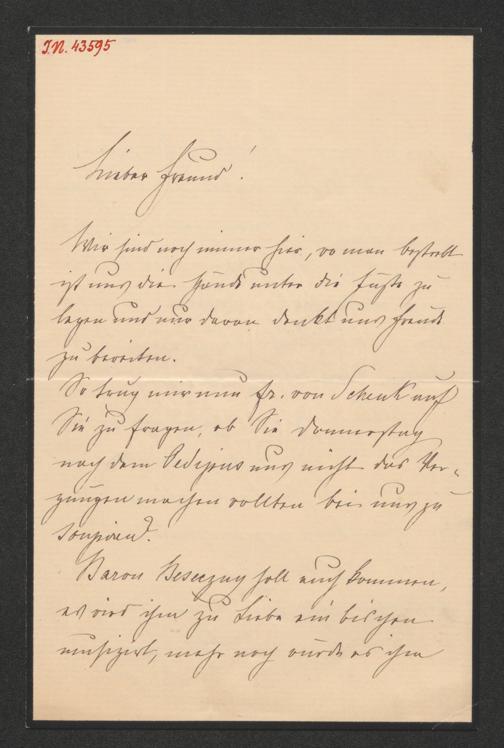 J.N. 43595
Lieber Freund!
Wir sind noch immer hier, wo man bestrebt
ist uns die Hände unter die Füße zu
legen und nur daran denkt uns Freude
zu bereiten.
So trug mir nun Fr. von Schenk auf
Sie zu fragen, ob Sie Donnerstag
nach dem Oedipus uns nicht das Ver-
gnügen machen wollten bei uns zu
soupiren?
Baron Beseczny soll auch kommen,
es wird ihm zu Liebe ein bischen
musizirt, mehr noch würde es ihm